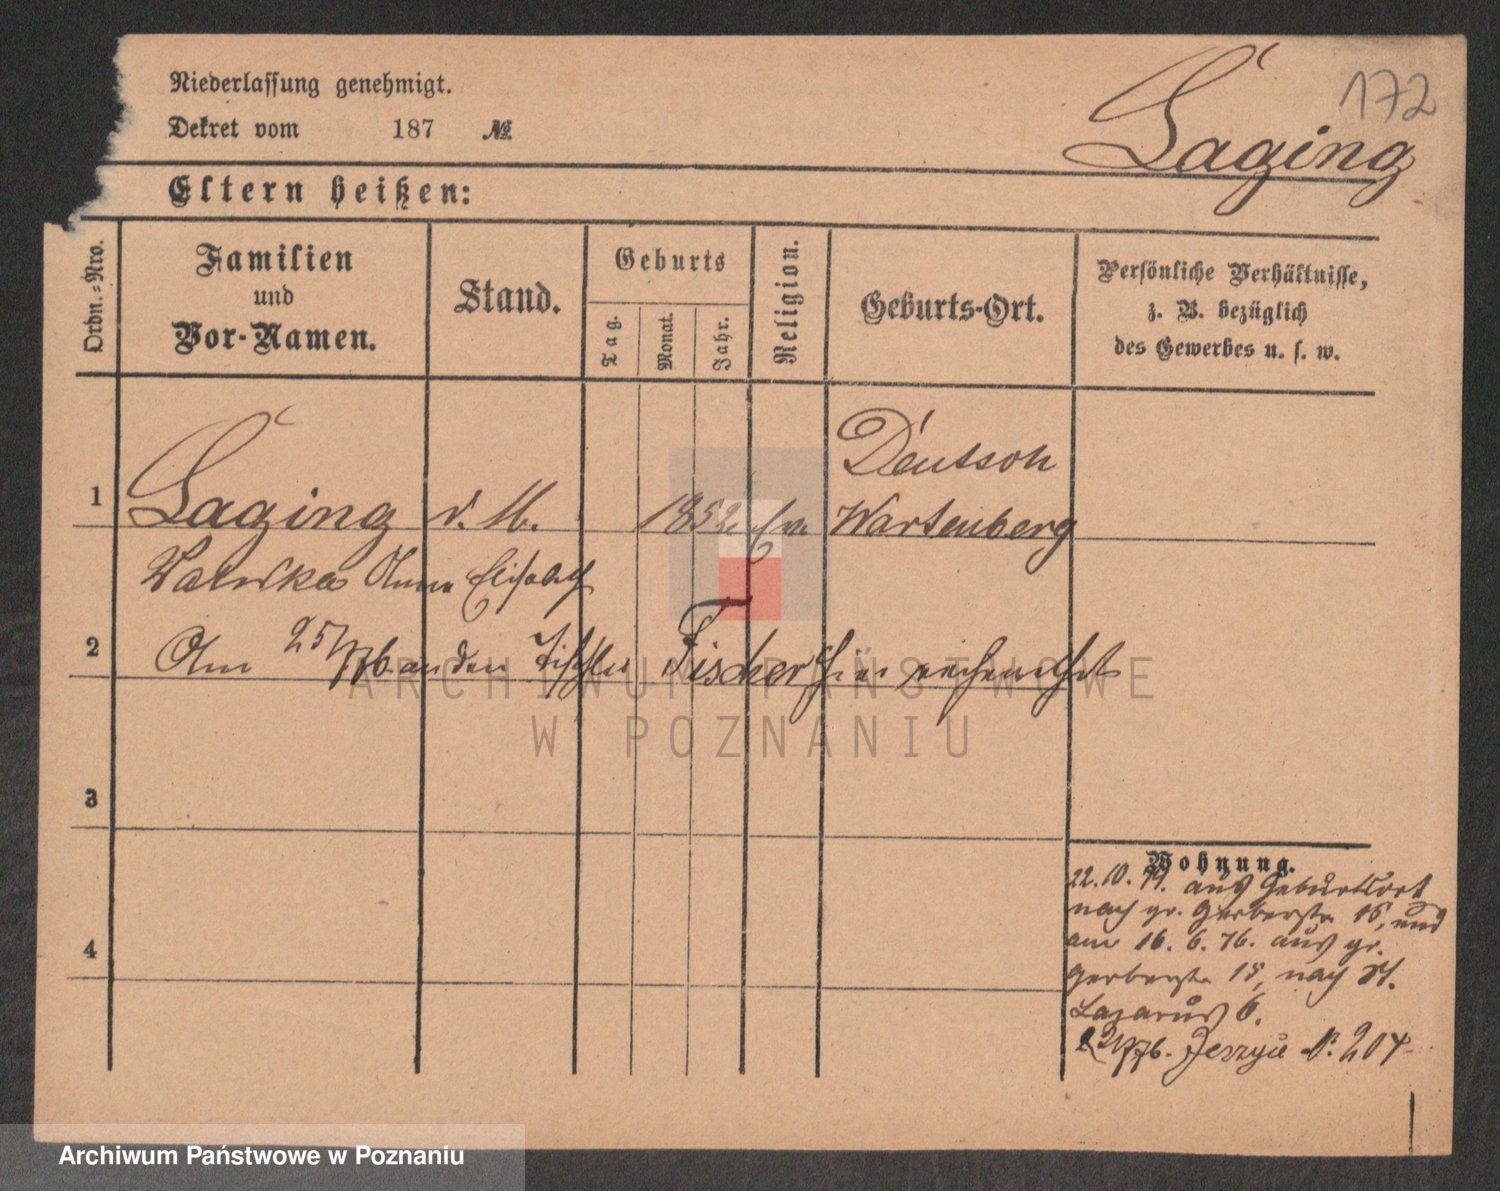 Niederlassung genehmigt.
Dekret vom 187 №
172
Laging
Eltern heißen:
Ordn.-Nro.
Familien
und
Vor-Namen.
Stand.
Geburts
Tag.
Monat.
Jahr.
Religion.
Geburts-Ort.
Persönliche Verhältnisse,
z. B. bezüglich
des Gewerbes u. s. w.
Deutsch
1 Laging d. M. 1852 ev. Wartenberg
Anna Elisabeth
2 Am 25/ 76 an den Tischler Fischer hier verheirathet
3
4
Wohnung.
22.10.74. aus Geburtsort
nach gr. Gerberstr 15, und
am 16.6.76. aus gr.
Gerberstr 15, nach St.
Lazarus 6.
76. Jerzyce No. 204
ARCHIWUM PAŃSTWOWE
W POZNANIU
Archiwum Państwowe w Poznaniu